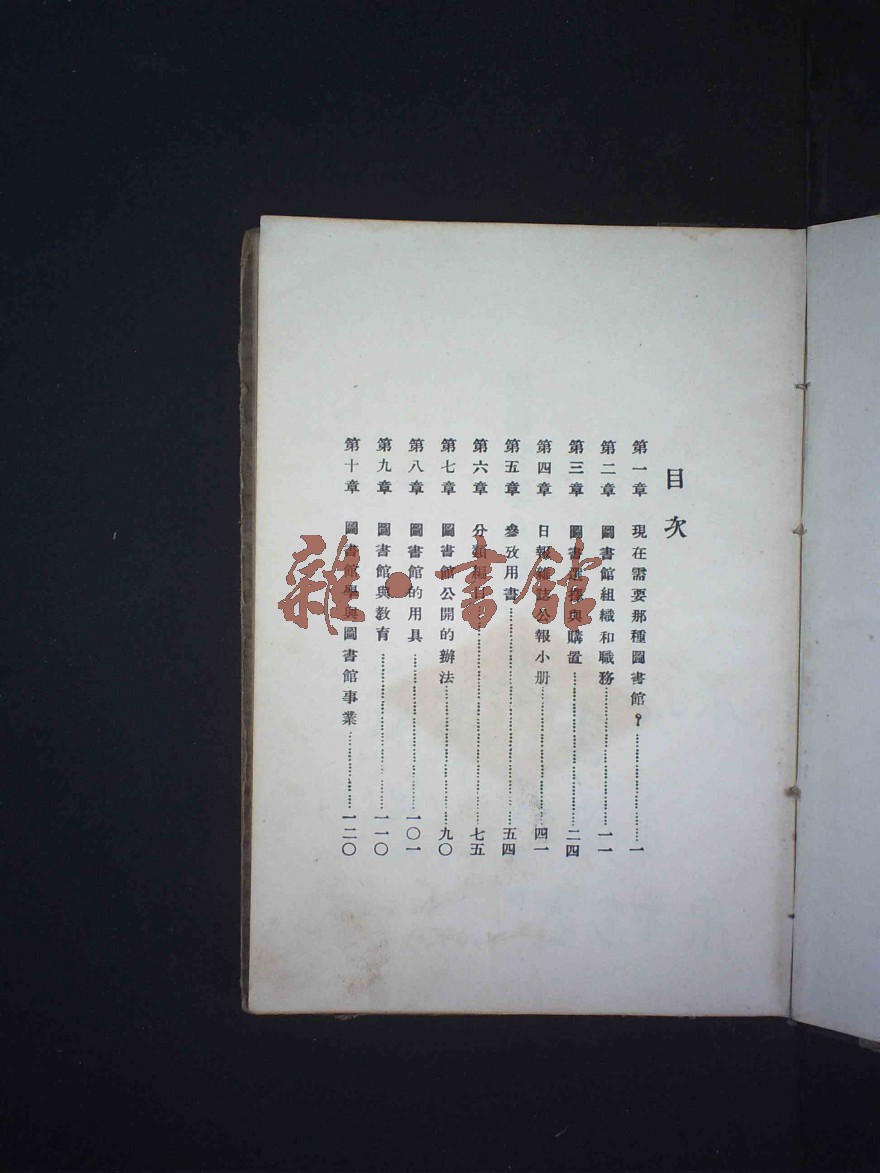 目次
第一章 現在需要那種圖書館?……一
第二章 圖書館組織和職務……一一
第三章 圖書選擇與購置……二四
第四章 日報雜誌公報小册……四一
第五章 參攷用書……五四
第六章 分類編目……七五
第七章 圖書館公開的辦法……九〇
第八章 圖書館的用具……一〇一
第九章 圖書館與敎育……一一〇
第十章 圖書館學與圖書館事業……一二〇
雜·書館